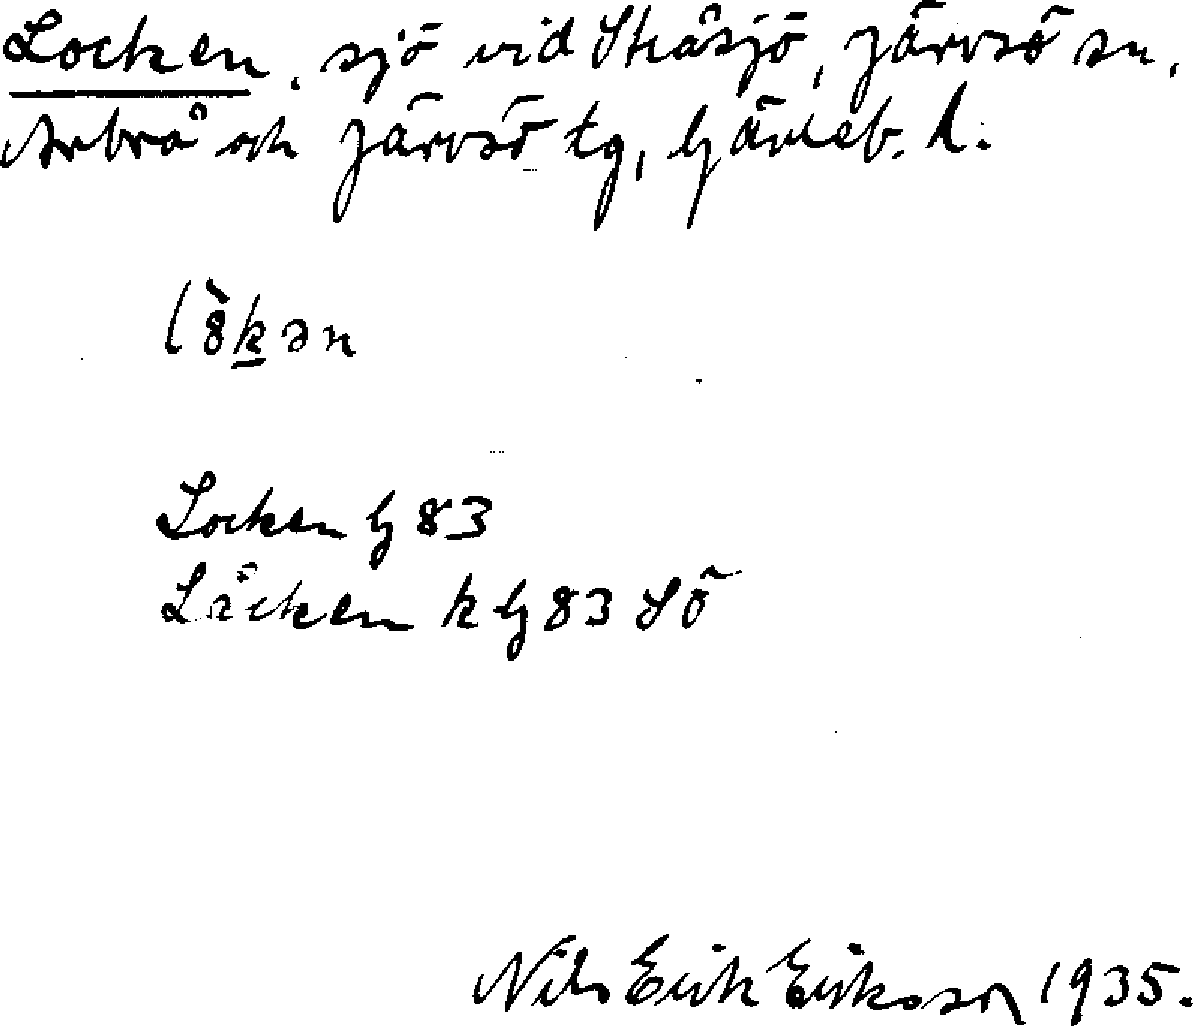 Locken, sjö vid Stråsjö, Järvsö sn,
Arbrå och Järvsö tg, Gävleb. l.
l ò̈kən
Locken G 83
Låcken k G 83 SÖ
Nils Erik Eriksson 1935.